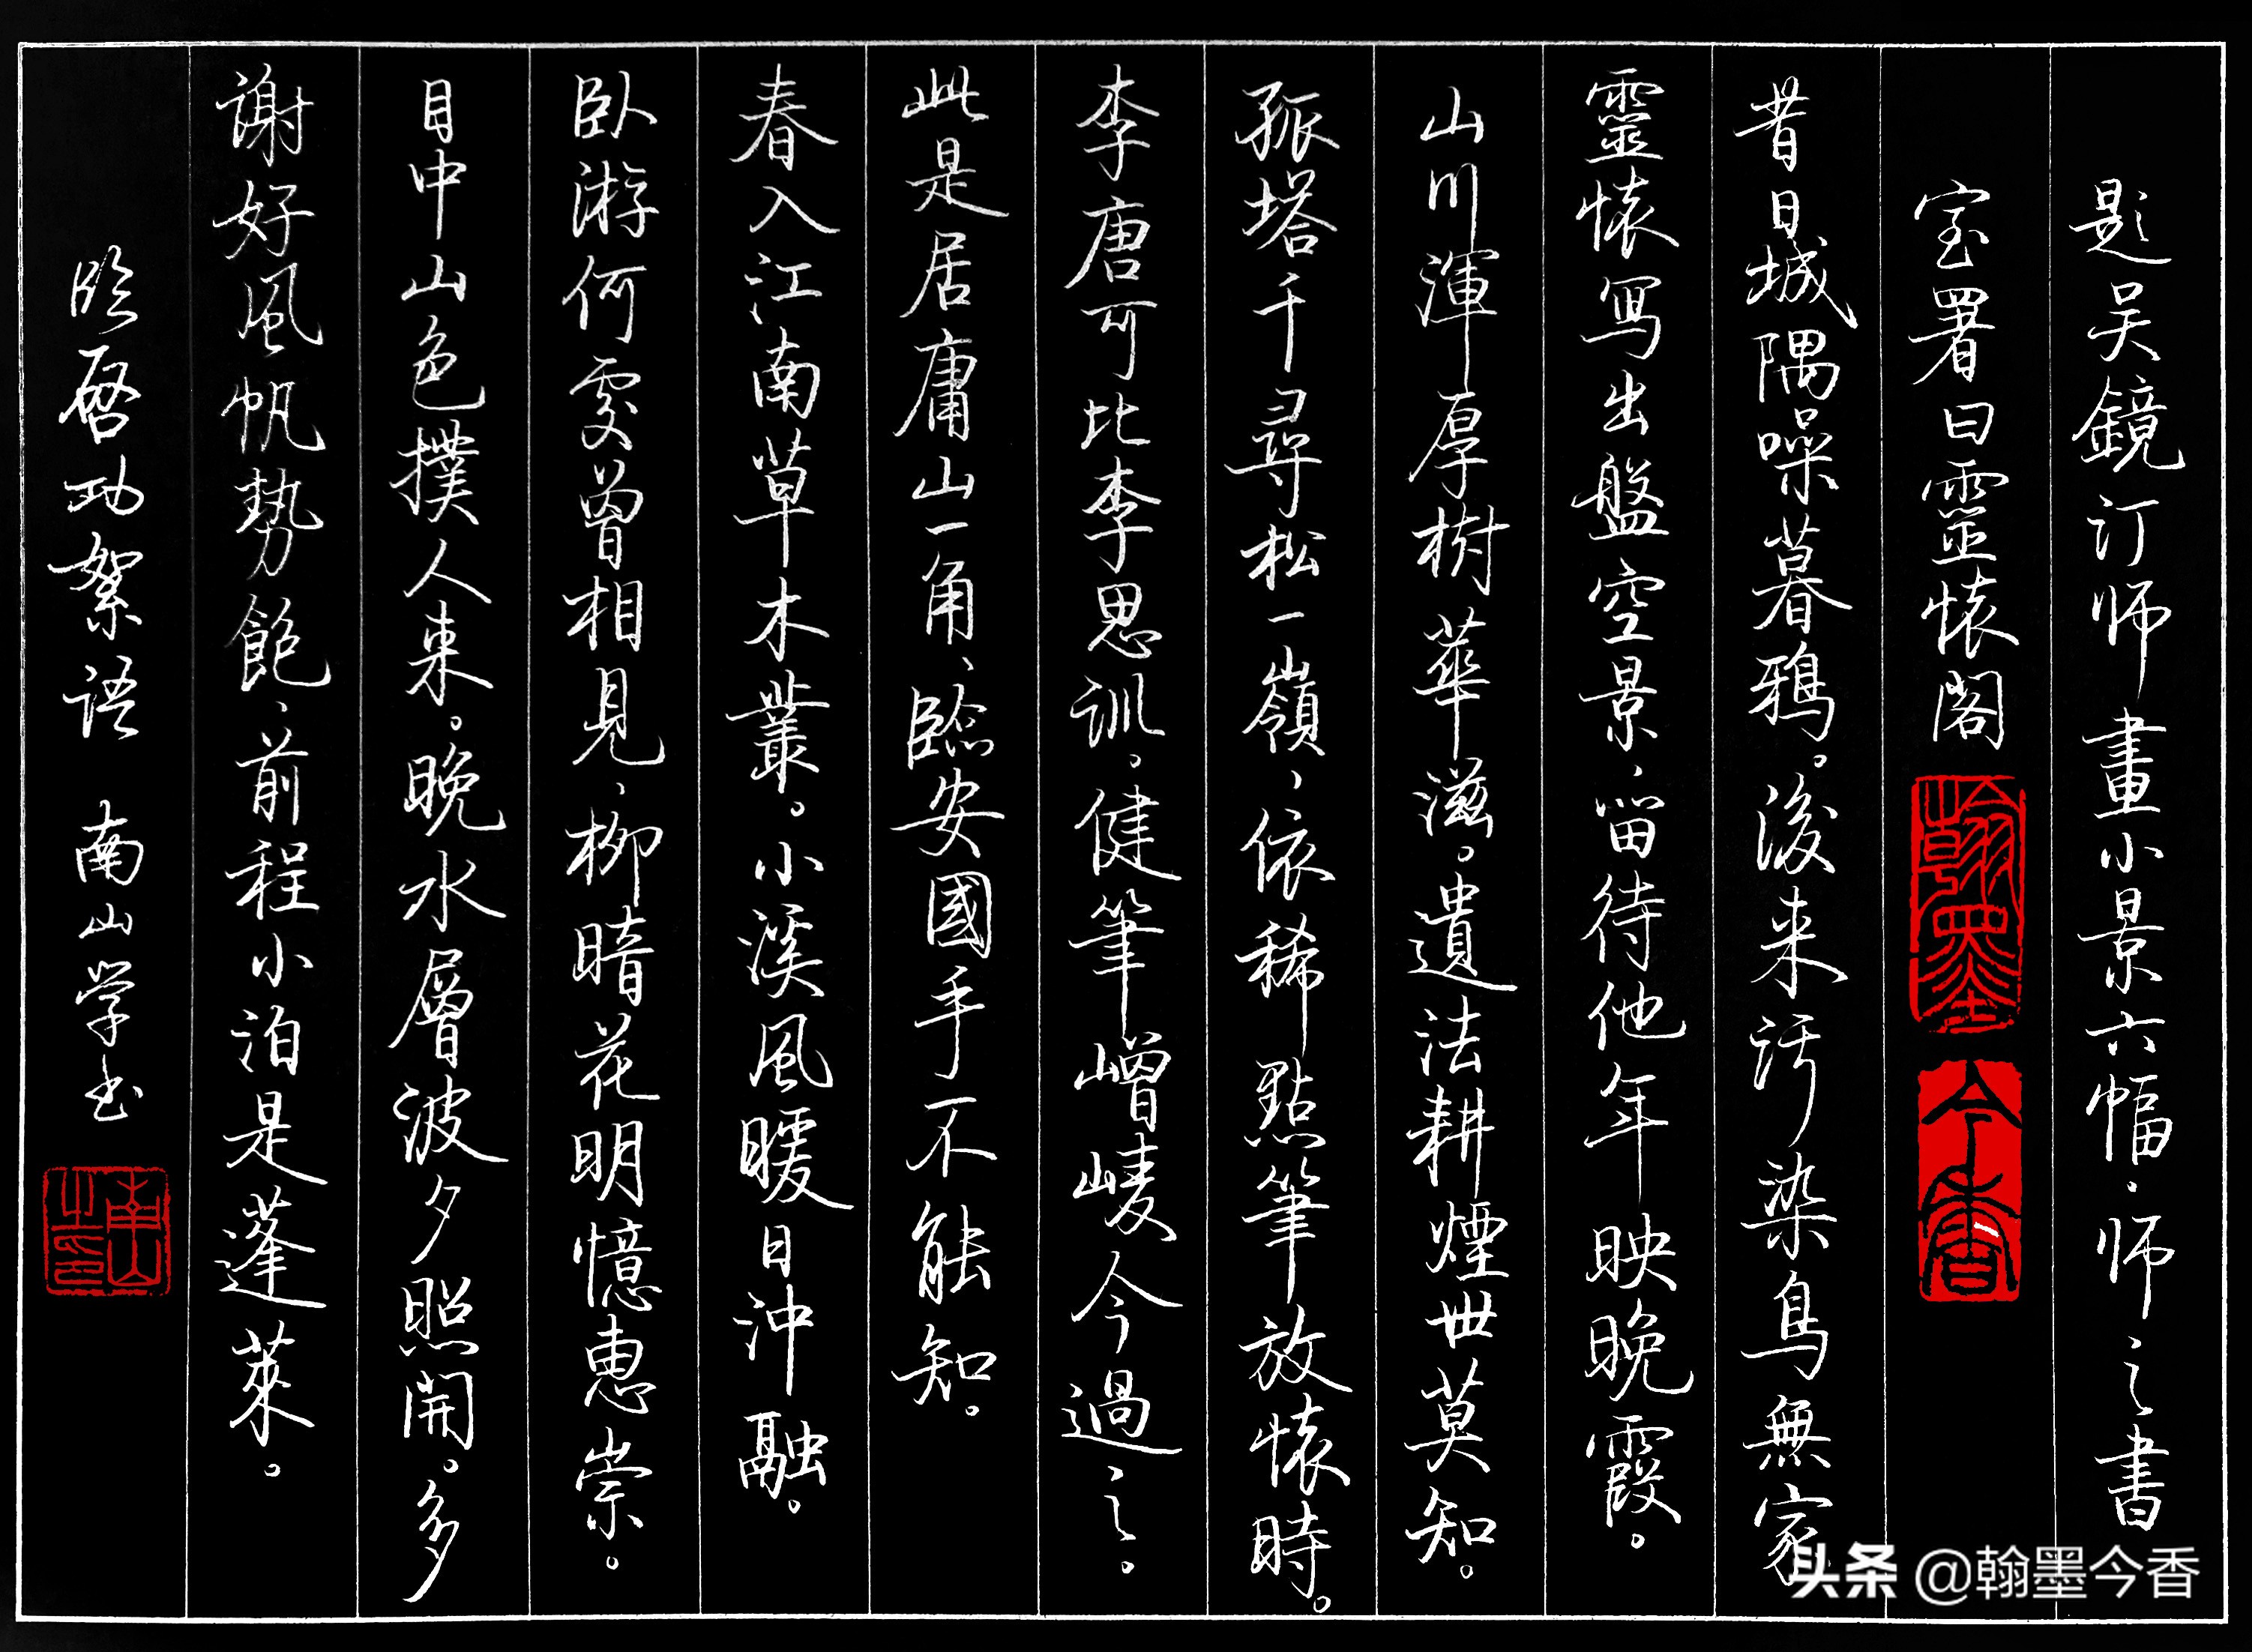 题吴鏡汀师畫小景六幅.师之書
室署曰靈懷阁
翰墨
今香
昔日城隅噪暮鴉。後来污染鳥無家
靈懷寫出盤空景、留待他年映晚霞。
山川渾厚樹華滋。遺法耕煙世莫知。
孤塔千尋松一嶺、依稀點筆放懷時。
李唐可比李思訓。健筆嶒崚今過之。
此是居庸山一角、臨安國手不能知。
春入江南草木叢。小溪風暖日沖融。
卧游何處曾相見、柳暗花明憶惠崇。
目中山色撲人来。晚水層波夕照開。多
謝好風帆勢飽、前程小泊是蓬萊。
临啓功絮语 南山学书
南山之印
头条 @翰墨今香